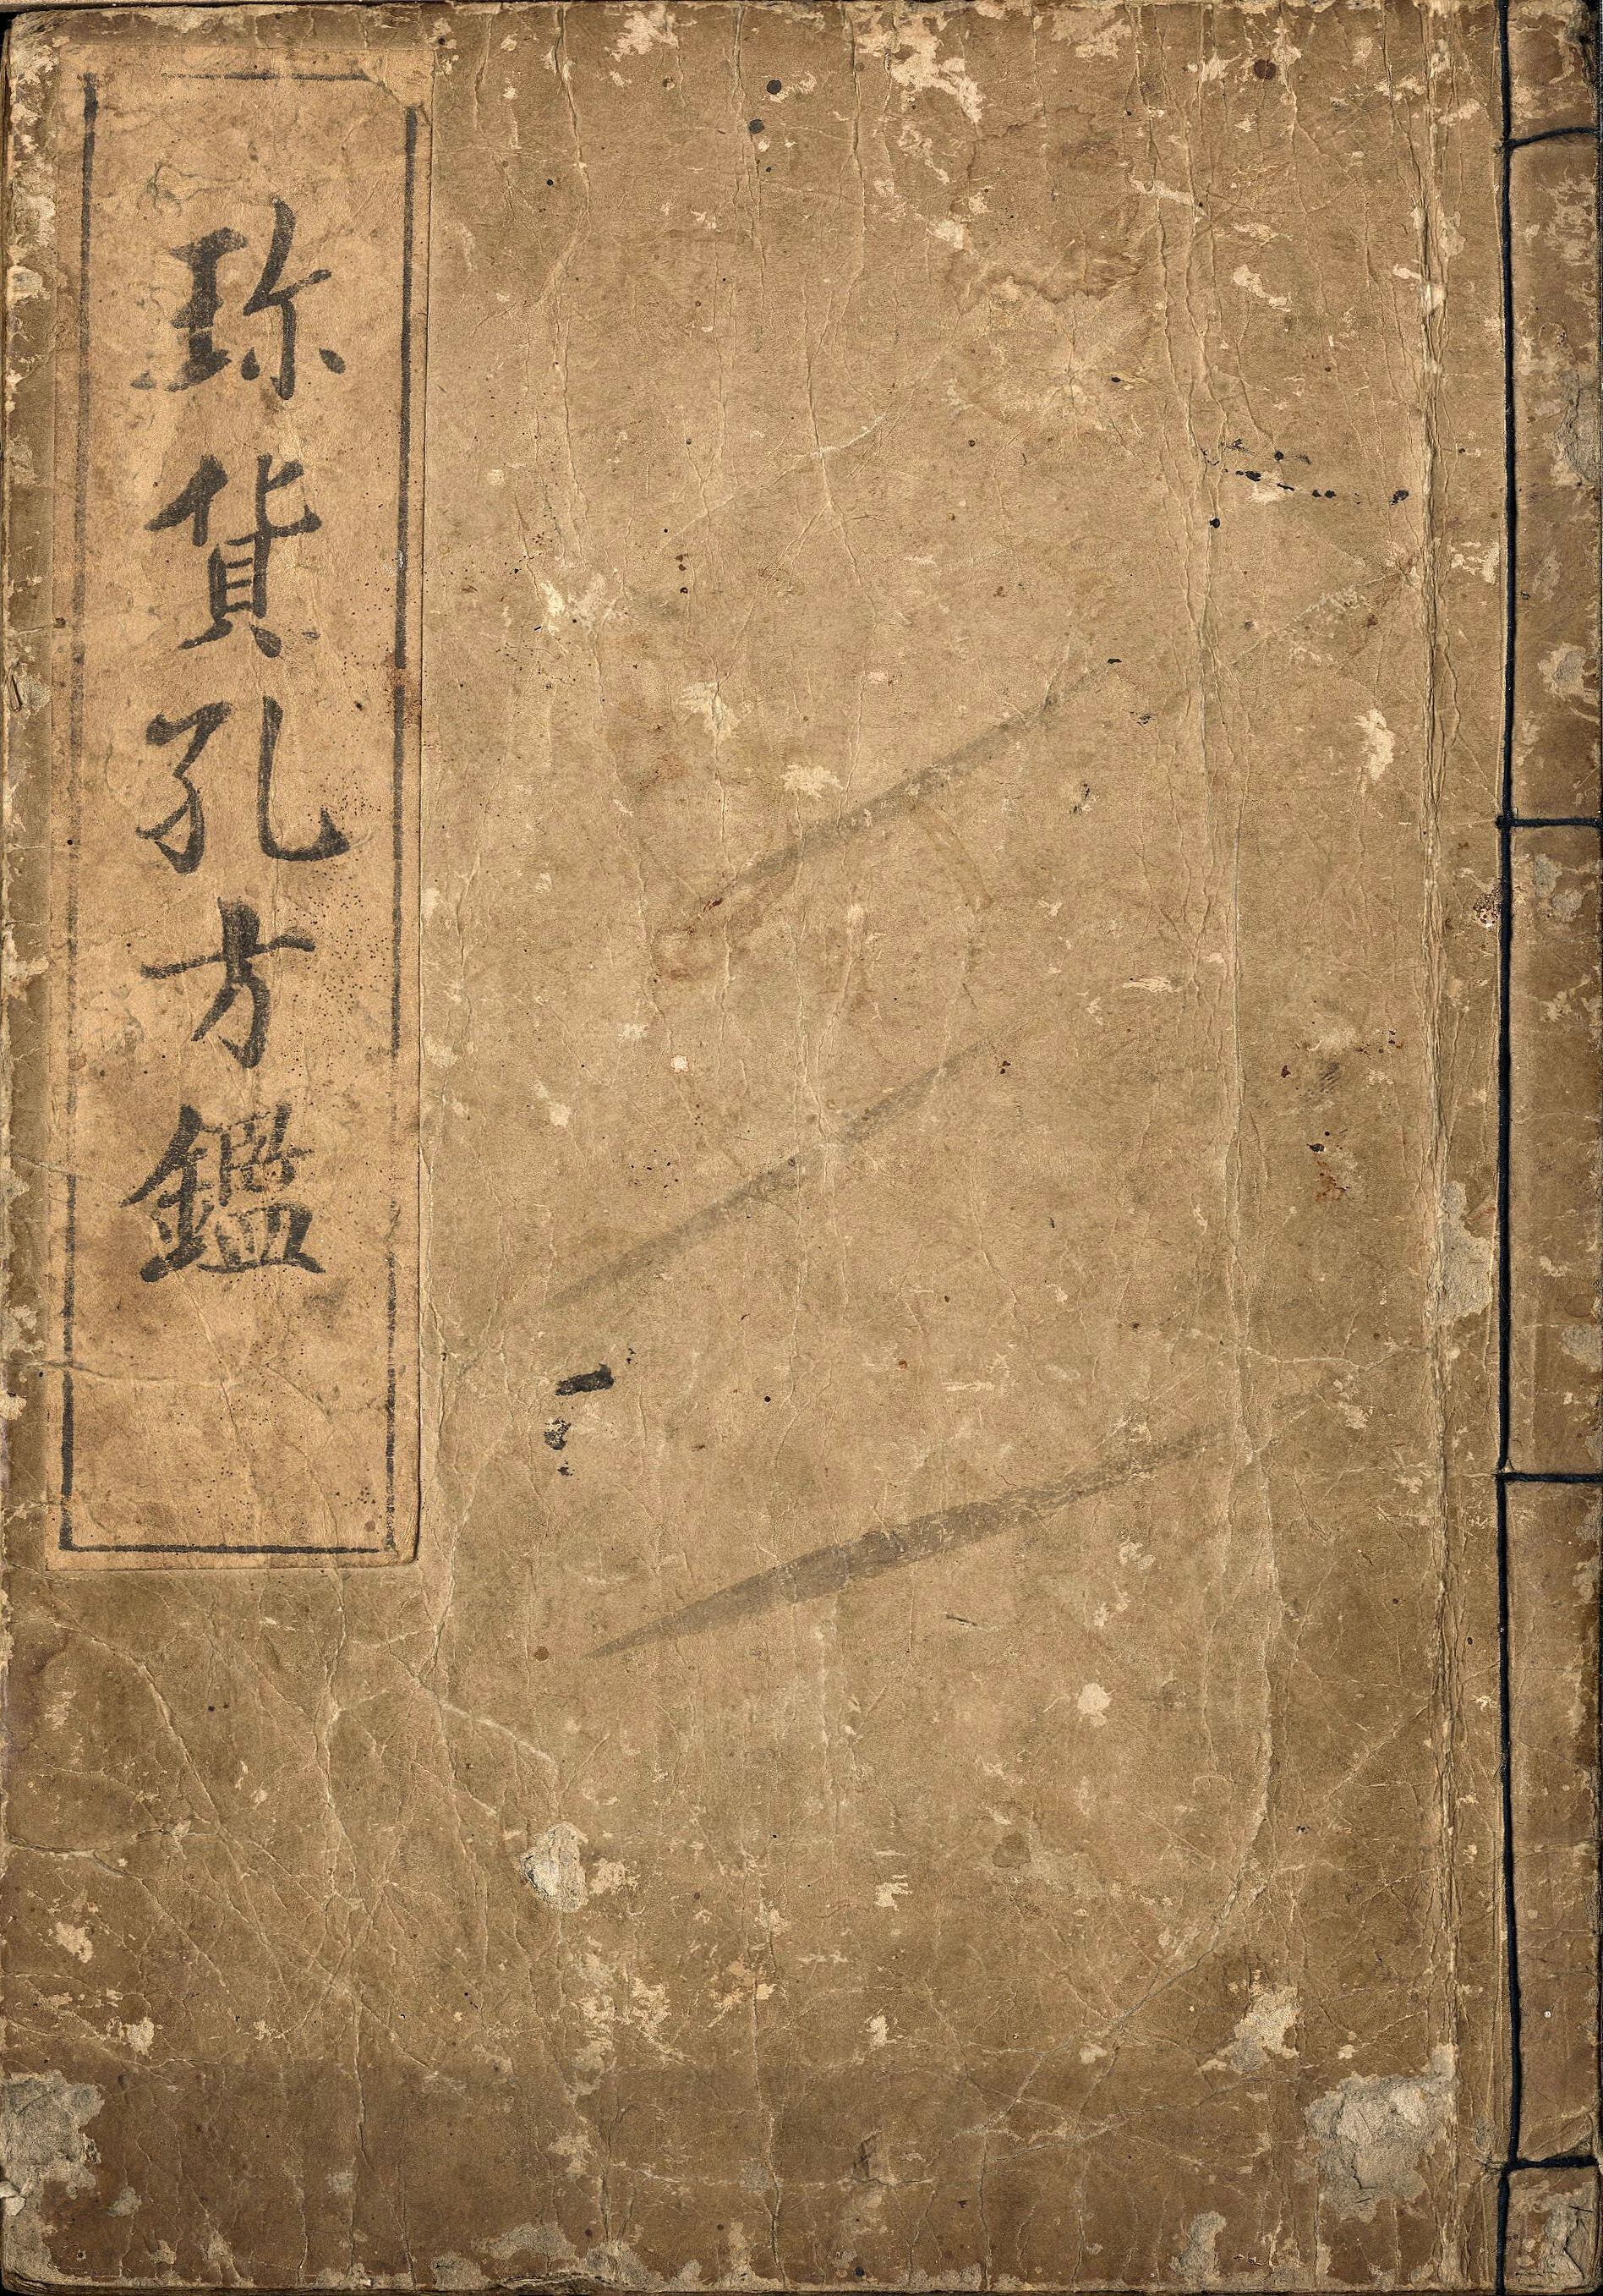 珎貨孔方鑑